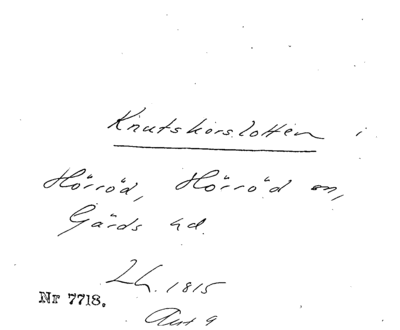 Knutshorslotten i
Hörröd, Hörröd sn,
Gärds hd.
Lh. 1815
Nr 7718.